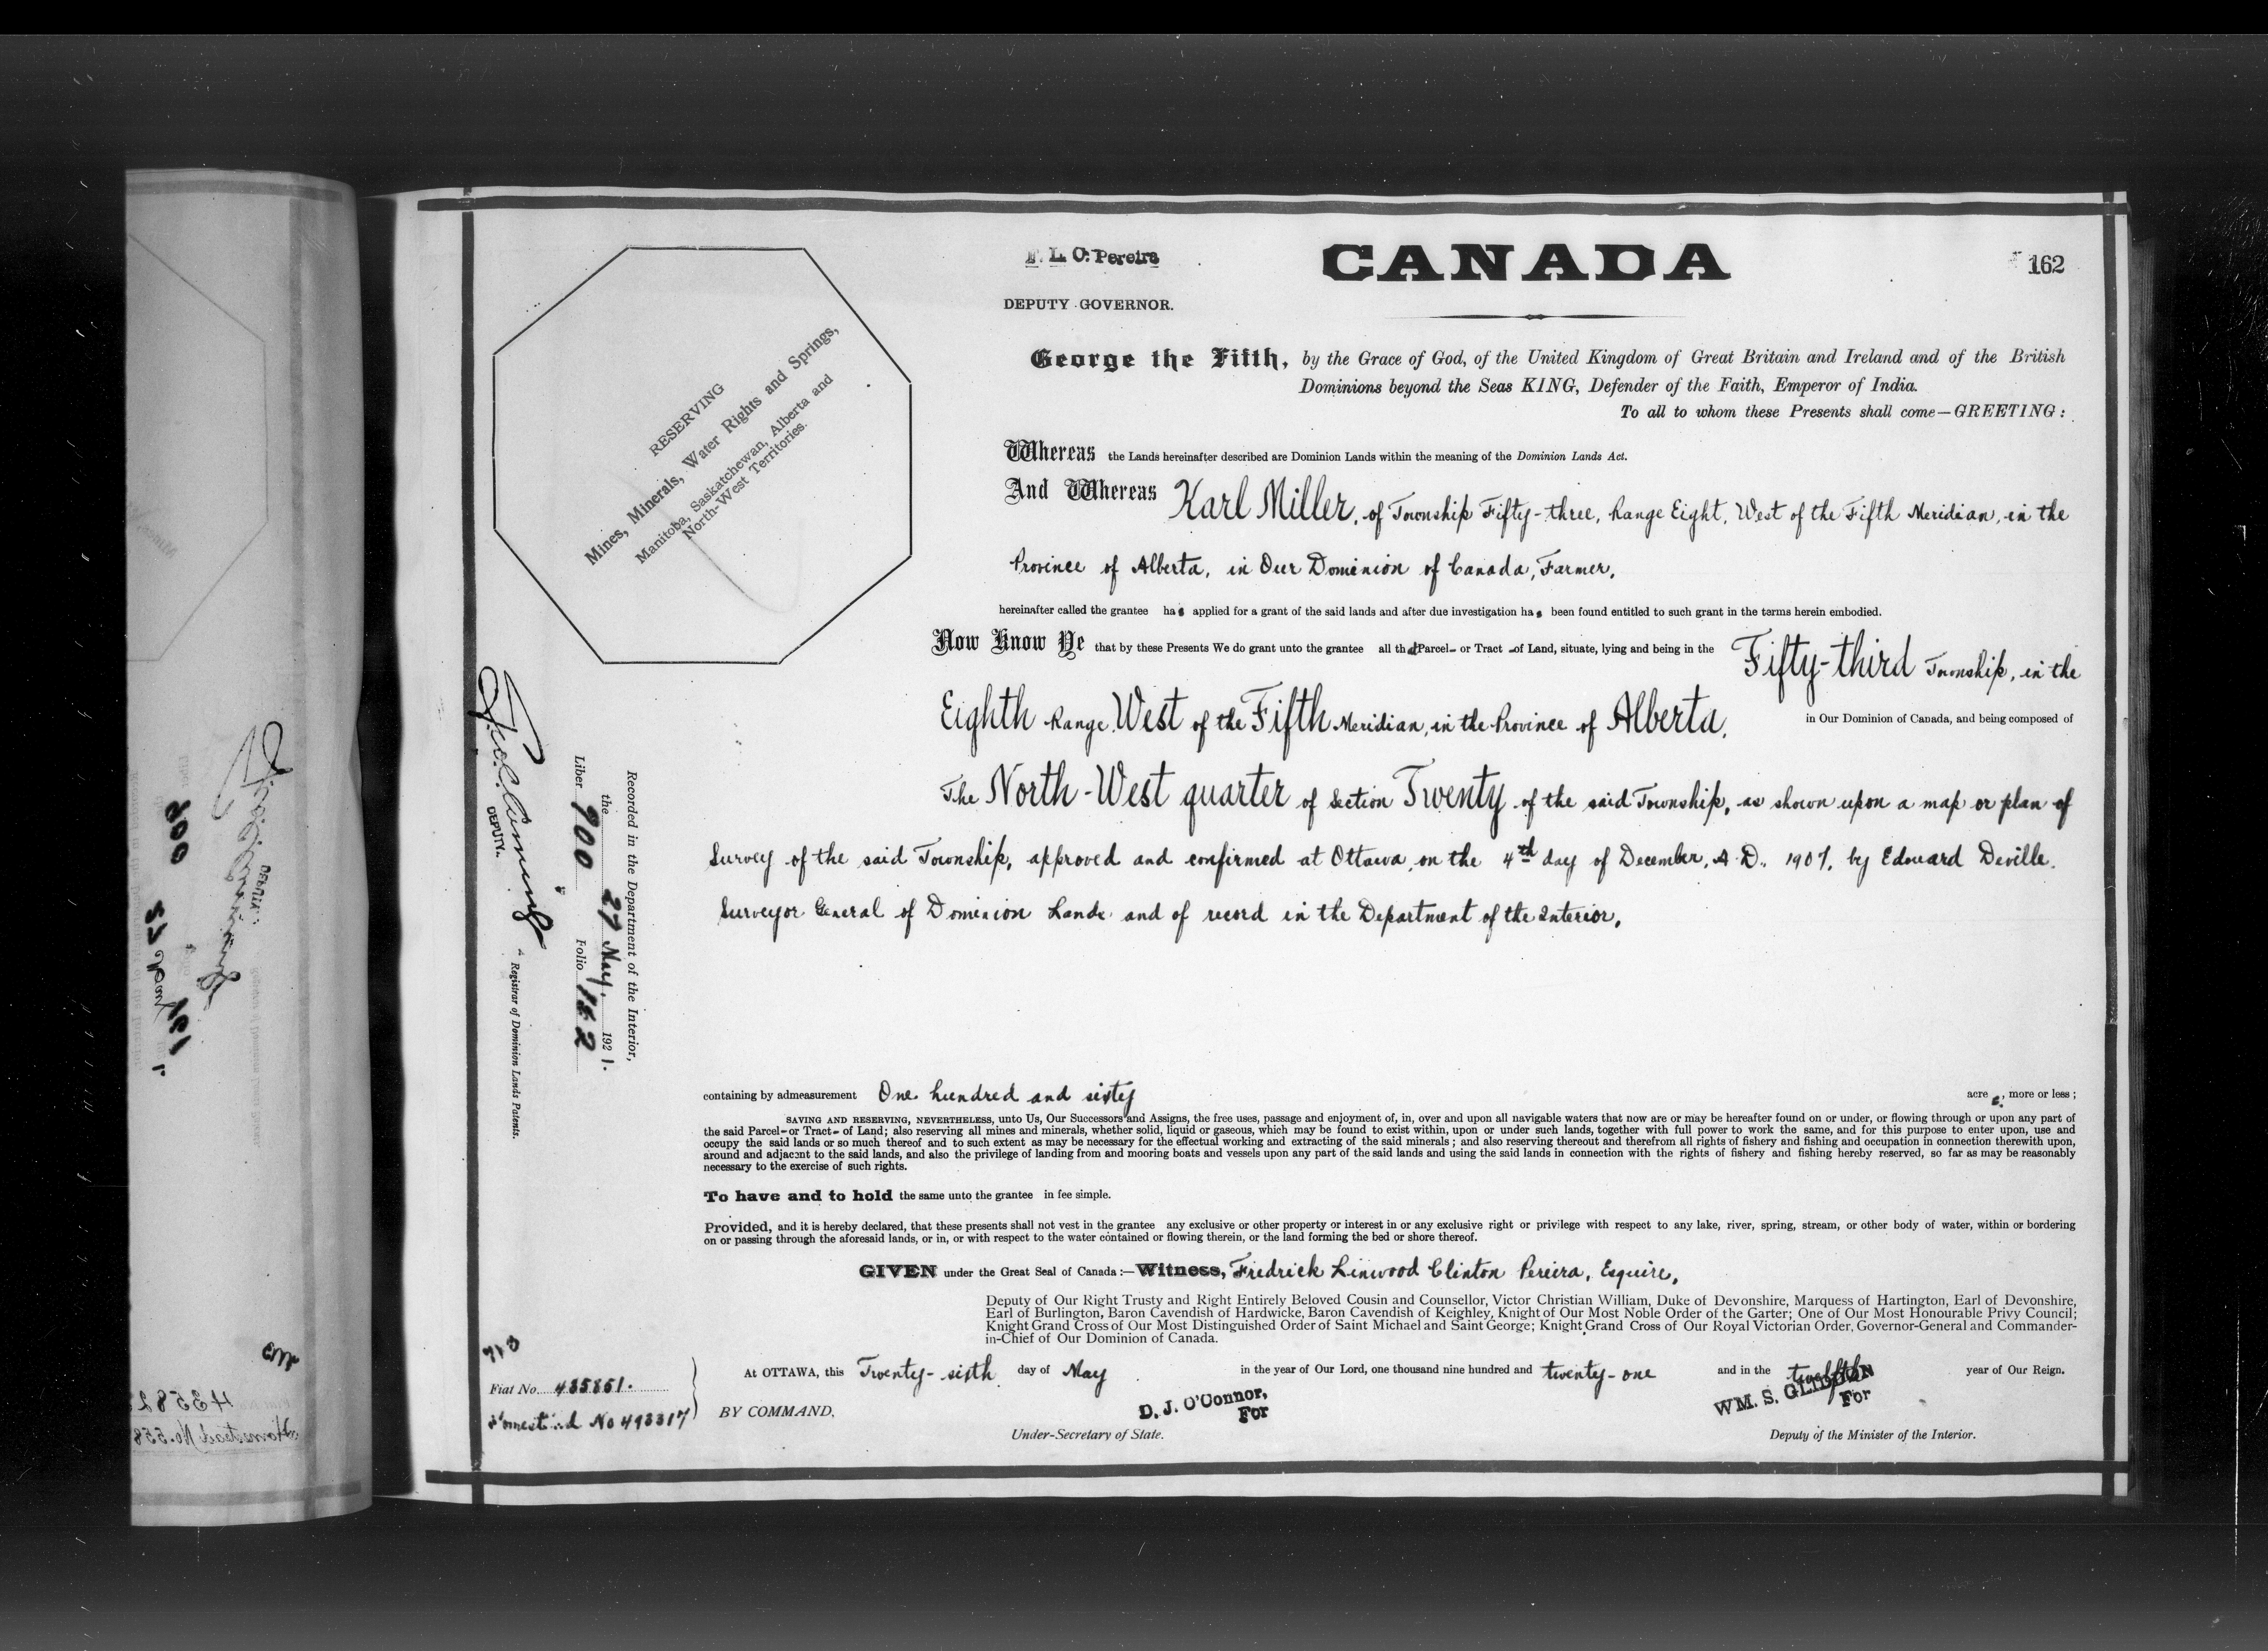 F. L. C. Pereira
DEPUTY GOVERNOR.
CANADA
162
RESERVING
Mines, Minerals, Water Rights and Springs,
Manitoba, Saskatchewan, Alberta and
North-West Territories.
George the Fifth, by the Grace of God, of the United Kingdom of Great Britain and Ireland and of the British
Dominions beyond the Seas KING, Defender of the Faith, Emperor of India.
To all to whom these Presents shall come—GREETING:
Whereas the Lands hereinafter described are Dominion Lands within the meaning of the Dominion Lands Act.
And Whereas Karl Miller, of Township Fifty-three, Range Eight, West of the Fifth Meridian, in the
Province of Alberta, in Our Dominion of Canada, Farmer,
hereinafter called the grantee has applied for a grant of the said lands and after due investigation has been found entitled to such grant in the terms herein embodied.
Now Know Ye that by these Presents We do grant unto the grantee all that Parcel or Tract of Land, situate, lying and being in the Fifty-third Township, in the
Eighth Range West of the Fifth Meridian, in the Province of Alberta, in Our Dominion of Canada, and being composed of
The North-West quarter of Section Twenty of the said Township, as shown upon a map or plan of
Survey of the said Township, approved and confirmed at Ottawa, on the 4th day of December, A.D. 1907, by Edouard Deville,
Surveyor General of Dominion Lands and of record in the Department of the Interior,
containing by admeasurement One hundred and sixty acres, more or less;
SAVING AND RESERVING, NEVERTHELESS, unto Us, Our Successors and Assigns, the free uses, passage and enjoyment of, in, over and upon all navigable waters that now are or may be hereafter found on or under, or flowing through or upon any part of
the said Parcel or Tract of Land; also reserving all mines and minerals, whether solid, liquid or gaseous, which may be found to exist within, upon or under such lands, together with full power to work the same, and for this purpose to enter upon, use and
occupy the said lands or so much thereof and to such extent as may be necessary for the effectual working and extracting of the said minerals; and also reserving thereout and therefrom all rights of fishery and fishing and occupation in connection therewith upon,
around and adjacent to the said lands, and also the privilege of landing from and mooring boats and vessels upon any part of the said lands and using the said lands in connection with the rights of fishery and fishing hereby reserved, so far as may be reasonably
necessary to the exercise of such rights.
To have and to hold the same unto the grantee in fee simple.
Provided, and it is hereby declared, that these presents shall not vest in the grantee any exclusive or other property or interest in or any exclusive right or privilege with respect to any lake, river, spring, stream, or other body of water, within or bordering
on or passing through the aforesaid lands, or in, or with respect to the water contained or flowing therein, or the land forming the bed or shore thereof.
GIVEN under the Great Seal of Canada:—Witness, Fredrick Linwood Clinton Pereira, Esquire,
Deputy of Our Right Trusty and Right Entirely Beloved Cousin and Counsellor, Victor Christian William, Duke of Devonshire, Marquess of Hartington, Earl of Devonshire,
Earl of Burlington, Baron Cavendish of Hardwicke, Baron Cavendish of Keighley, Knight of Our Most Noble Order of the Garter; One of Our Most Honourable Privy Council;
Knight Grand Cross of Our Most Distinguished Order of Saint Michael and Saint George; Knight Grand Cross of Our Royal Victorian Order, Governor-General and Commander-
in-Chief of Our Dominion of Canada.
At OTTAWA, this Twenty-sixth day of May in the year of Our Lord, one thousand nine hundred and twenty-one and in the twelfth year of Our Reign.
BY COMMAND,
D. J. O'Connor,
For
Under-Secretary of State.
WM. S. GLIDDON
For
Deputy of the Minister of the Interior.
Recorded in the Department of the Interior,
the 27 May, 1921.
Liber 900 Folio 162
DEPUTY.
Registrar of Dominion Lands Patents.
Fiat No. 435851.
Homestead No 493317